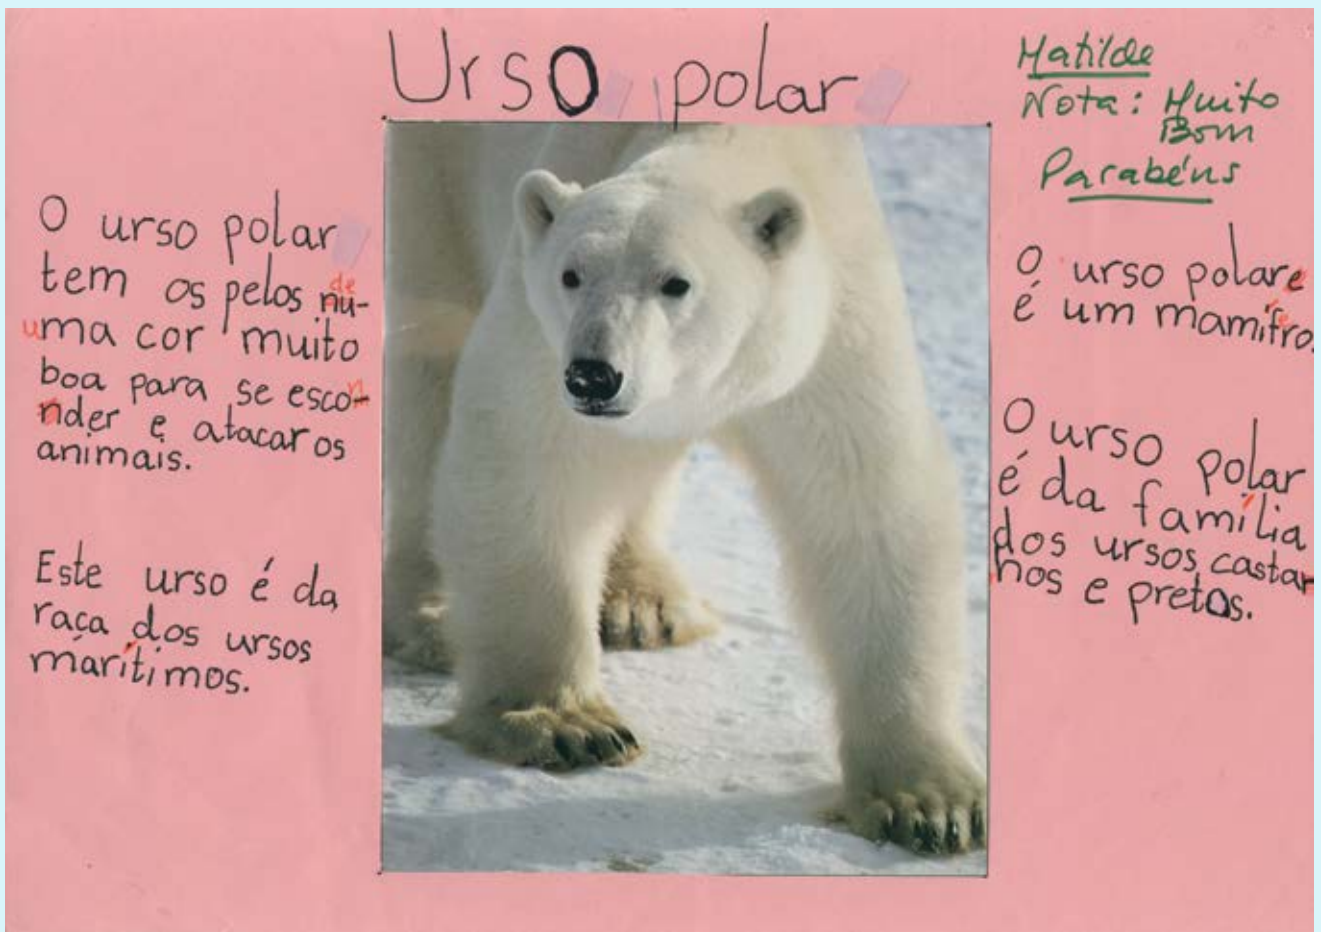 Urso polar
Matilde
Nota: Muito
Bom
Parabéns
O urso polar
tem os pelos nu-
de
uma cor muito
boa para se esco-
n
nder e atacar os
animais.
Este urso é da
raça dos ursos
marítimos.
O urso polare
é um mamífro.
fe
O urso polar
é da família
dos ursos castan
hos e pretos.